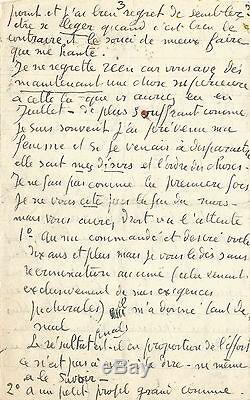 3
point et j'ai bien regret de sembler
être si léger quand c'est bien le
contraire et le souci de mieux faire
que me hante.
Je ne regrette rien car vous avez dès
maintenant une chose supérieure
à celle là que vs auriez eu en
Juillet - de plus souffrant comme
je suis souvent j'ai prévenu ma
femme et si je venais à disparaître
elle sait mes désirs et l'ordre des choses.
Je ne fais pas comme la première fois
je ne vous cite pas la fin du mois
mais vous aurez droit vu l'attente
1º Au nu commandé et désiré voilà
dix ans et plus mais je vous le dis sans
récrimination aucune (cela venant
exclusivement de mes exigences
picturales) il m'a donné tant de
mal
Le résultat est-il en proportion de l'effort
ce n'est pas à moi à le dire - ou même
à le savoir -
2º à un petit profil grand comme